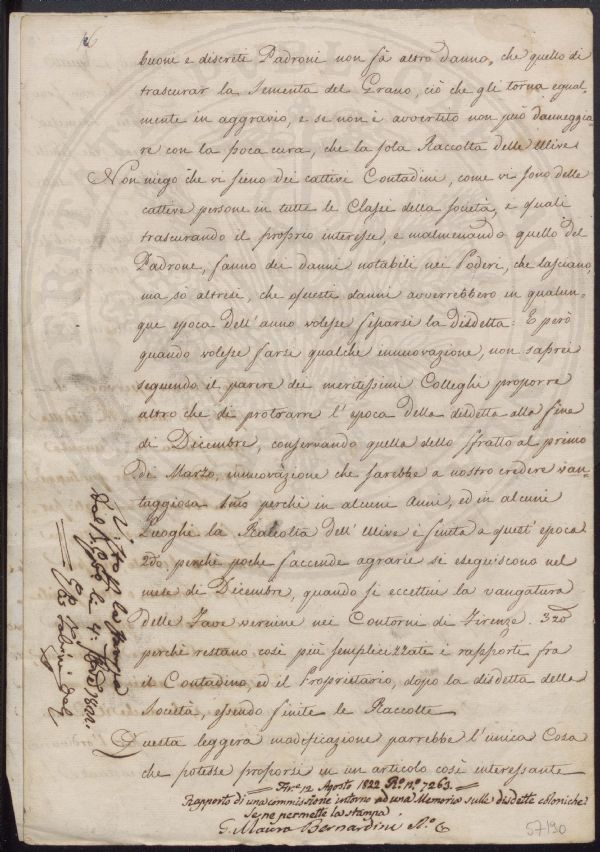 buoni e discreti Padroni non fà altro danno, che quello di
trascurar la Sementa del Grano, ciò che gli torna egual-
mente in aggravio, e se non è avvertito non può danneggia-
re con la poca cura, che la sola Raccolta delle Ulive
Non niego che vi sieno dei cattivi Contadini, come vi sono delle
cattive persone in tutte le Classi della società, e quali
trascurando il proprio interesse, e malmenando quello del
Padrone, fanno dei danni notabili nei Poderi, che lasciano,
ma sò altresì, che questi danni avverrebbero in qualun-
que epoca dell'anno volesse fissarsi la disdetta: E però
quando volesse farsi qualche innovazione, non saprei
seguendo il parere dei meritissimi Colleghi proporre
altro che di protrarre l'epoca della disdetta alla fine
di Dicembre, conservando quella dello sfratto al primo
di Marzo, innovazione che sarebbe a nostro credere van-
taggiosa 1mo perchè in alcuni Anni, ed in alcuni
Luoghi la Raccolta dell'Ulive è finita a quest'epoca
2do, perchè poche faccende agrarie si eseguiscono nel
mese di Dicembre, quando si eccettui la vangatura
delle Fave vernine nei Contorni di Firenze. 3zo
perchè restano così più semplicizzati i rapporti fra
il Contadino, ed il Proprietario, dopo la disdetta della
Società, essendo finite le Raccolte
Questa leggera modificazione parrebbe l'unica Cosa
che potesse proporsi in un articolo così interessante
Fir.e 12 Agosto 1822 R.o n.o 7263.
Rapporto di una commissione intorno ad una Memoria sulle disdette coloniche
Se ne permette la stampa
G. Mauro Bernardini
57190